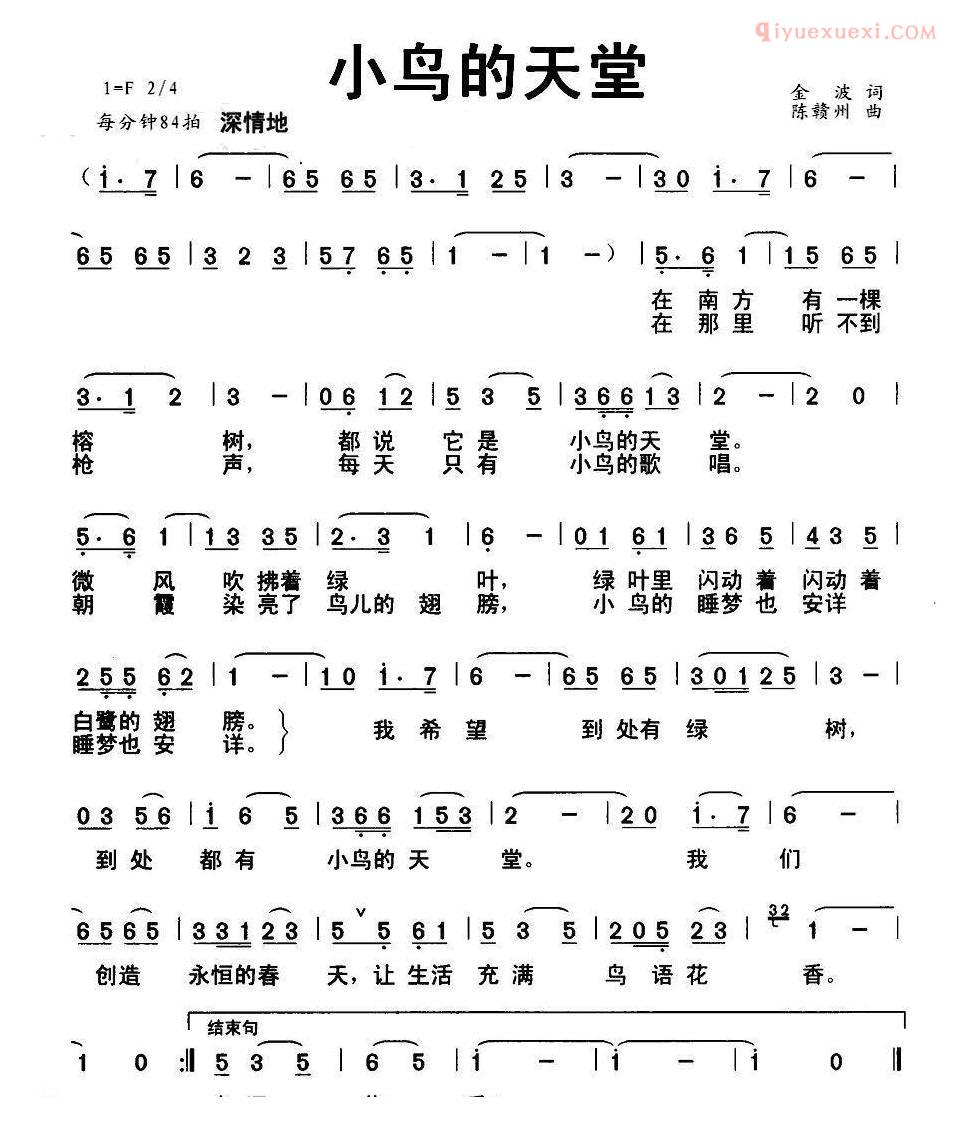 qiyuexuexi.com
小鸟的天堂
1=F 2/4
金 波 词
每分钟84拍 深情地
陈赣州 曲
( i· 7 | 6 - | 65 65 | 3· 1 25 | 3 - | 30 i· 7 | 6 - |
65 65 | 3 2 3 | 57 65 | 1 - | 1 - ) | 5· 6 1 | 15 65 |
在 南 方 有 一棵
在 那 里 听 不到
3· 1 2 | 3 - | 06 12 | 5 3 5 | 366 13 | 2 - | 2 0 |
榕 树, 都 说 它 是 小鸟的天 堂。
枪 声, 每 天 只 有 小鸟的歌 唱。
5· 6 1 | 13 35 | 2· 3 1 | 6 - | 01 61 | 36 5 | 43 5 |
微 风 吹 拂着 绿 叶, 绿 叶里 闪动 着 闪动 着
朝 霞 染 亮了 鸟儿的 翅 膀, 小 鸟的 睡梦 也 安详
255 62 | 1 - | 10 i· 7 | 6 - | 65 65 | 30125 | 3 - |
白鹭的 翅 膀。 我 希 望 到 处有 绿 树,
睡梦也 安 详。
03 56 | i 6 5 | 366 153 | 2 - | 20 i· 7 | 6 - |
到 处 都 有 小鸟的 天 堂。 我 们
6565 | 33123 | 5 ∨ 5 61 | 5 3 5 | 205 23 | 32 1 - |
创造 永恒的春 天, 让 生活 充 满 鸟 语 花 香。
结束句
1 0 :‖ 5 3 5 | 6 5 | i - | i - | i - | i 0 ‖